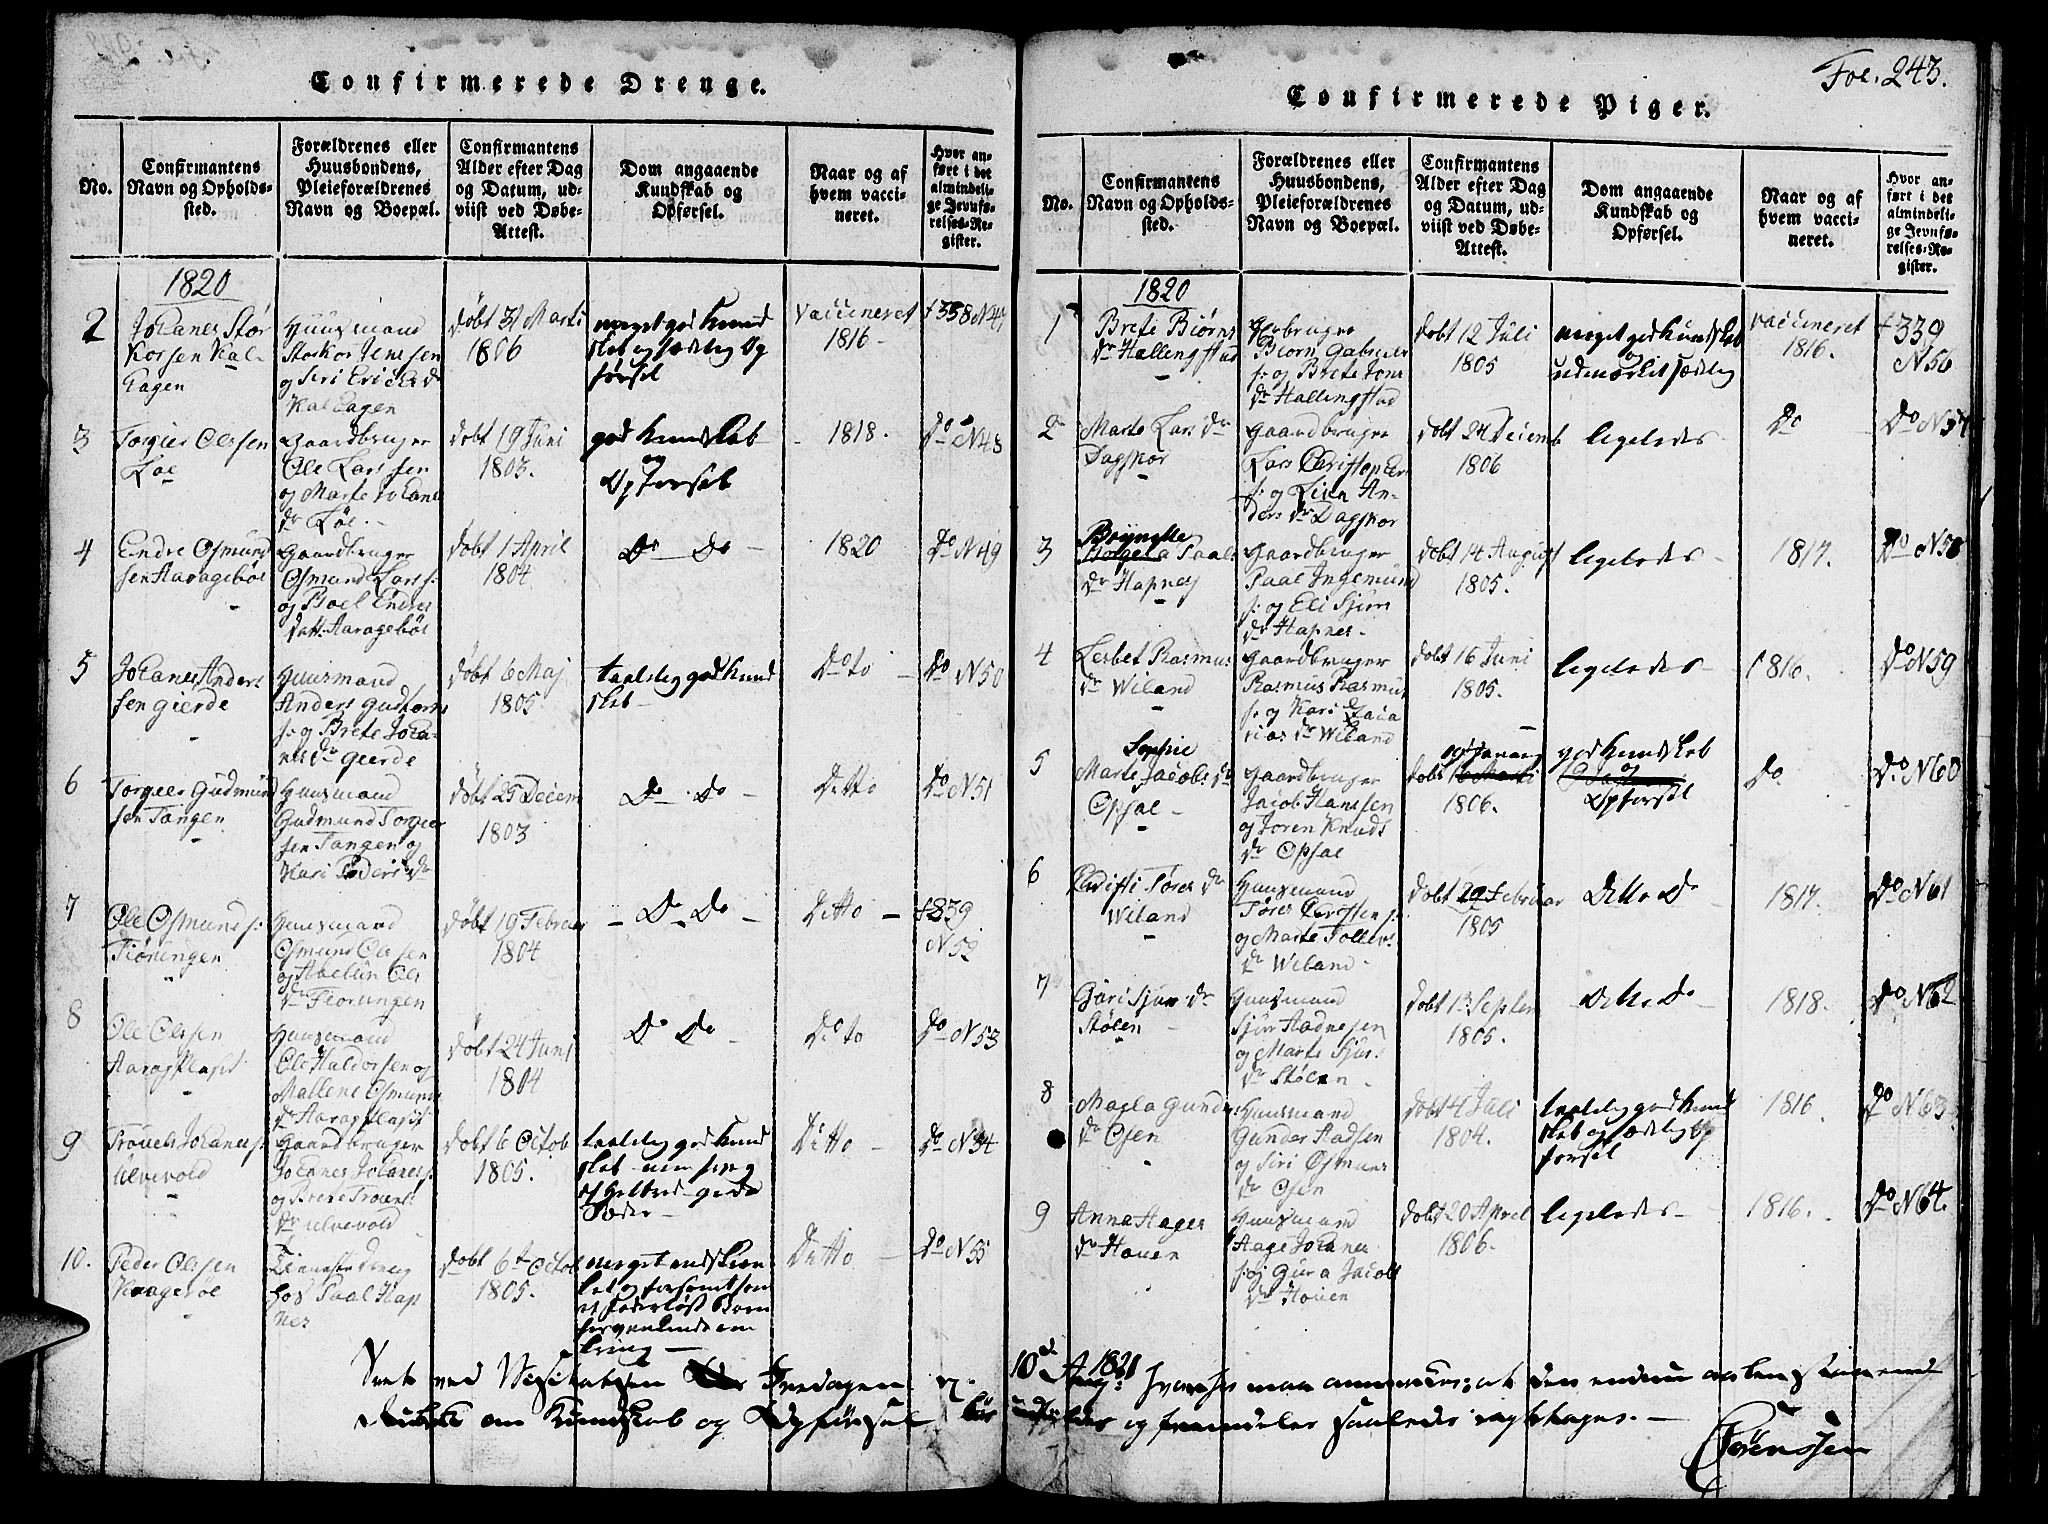 Fol. 243.
Confirmerede Drenge.
No.
Confirmantens
Navn og Opholds-
sted.
Forældrenes eller
Huusbondens,
Pleieforældrenes
Navn og Boepæl.
Confirmantens
Alder efter Dag
og Datum, ud-
viist ved Døbe-
Attest.
Dom angaaende
Kundskab og
Opførsel.
Naar og af
hvem vacci-
neret.
Hvor an-
ført i det
almindeli-
ge Jevnfø-
relses-Re-
gister.
1820
2
Johanes Stor
Korsen Kal-
hagen
Huusmand
Storkor Jensen
og Siri Erichs dr
Kalhagen
Døbt 31 Marti
1806
meget god Kund
skab og sædelig Op
førsel
vaccineret
1816
3
Torgier Olessen
Løe
Gaardbruger
Ole Larssen
og Marte Johans
dr Løe
Døbt 19 Juni
1803.
god Kundskab
og
Opførsel
1818.
Do N48
4
Endre Osmund
sen Aaragebøe
Gaardbruger
Osmund Lars s:
og Boel Endres
datt. Aaragebøe
Døbt 1 April
1804
Do Do
1820
Do N49
5
Johanes Anders
sen gierde
Huusmand
Anders Gudtorms
s: og Brete Joha-
nes dr gierde
Døbt 6 Maj
1805
taalelig god Kund
skab
Do to
Do N50
6
Torgeer Gudmund
sen Tangen
Huusmand
Gudmund Torgier
sen Tangen og
Kari Peders dr
Døbt 25 Decem
1803
Do Do
Ditto
Do N51
7
Ole Osmund s:
Tiørungen
Huusmand
Osmund Olessen
og Abelun Ols
dr Tiorungen
Døbt 19 Februar
1804
Do Do
Ditto
N52
8
Ole Olessen
Aaragsplads
Huusmand
Ole Haldorsen og
Mallene Osmunds
dr Aaragsplads
Døbt 24 Juni
1804
Do Do
Do to
Do N53
9
Trouels Johanes s:
Ulvevold
Gaardbruger
Johannes Johanes s:
og Brete Trouels
dr Ulvevold
Døbt 6 Octob
1805.
taalelig god Kund
skab
Ditto
Do N54
10.
Peder Olessen
Kragebøe
Tienestedreng
hos Paal Hap
nes
Døbt 6te Octob
1805.
Ditto
Do N55
Confirmerede Piger.
No.
Confirmantens
Navn og Opholds-
sted.
Forældrenes eller
Huusbondens,
Pleieforældrenes
Navn og Boepæl.
Confirmantens
Alder efter Dag
og Datum, ud-
viist ved Døbe-
Attest.
Dom angaaende
Kundskab og
Opførsel.
Naar og af
hvem vacci-
neret.
Hvor an-
ført i det
almindeli-
ge Jevnfø-
relses-Re-
gister.
1820
1
Brete Biørns
dr Hallingstad
Gbruger
Biorn Gabriel
s: og Brete Jons
dr Hallingstad
døbt 12 Juli
1805
meget god Kundskab
og
udmærket sædelig
vaccineret
1816.
N56
2
Marte Lars dr
Dagspor
Gaardbruger
Lars Christopher
s: og Lisa An-
ders dr Dagspor
døbt 24 Decemb
1806
ligeledes
Do
3
Paals
dr Hapnes
Gaardbruger
Paal Ingemund
s: og Eli Sjurs
dr Hapnes
døbt 14 August
1805.
ligeledes
1817.
Do N58
4
Lisbet Rasmus
dr Wiland
Gaardbruger
Rasmus Rasmus
s: og Kari Zaca
rias dr Wiland
døbt 16 Juni
1805.
ligeledes
1816.
Do N59
5
Sophie
Marte Jacobs dr
Opsal
Gaardbruger
Jacob Hanssen
og Joren Knuds
dr Opsal
1806.
god Kundskab
og
Opførsel
Do
Do N60
6
Christi Tores dr
Wiland
Huusmand
Tores Torsten s:
og Marte Tollevs
dr Wiland
døbt 29 Februar
1805
Ditto Do
1817.
Do N61
7
Guri Sjurs dr
Stølen
Huusmand
Sjur Aadnesen
og Marte Sjurs
dr Stølen
døbt 13 Septem
1805.
Ditto Do
1818.
Do N62
8
Magla Gunders
dr Osen
Huusmand
Gunder Aadsen
og Siri Osmunds
dr Osen
døbt 4 Juli
1804.
taalelig god Kund
skab og sædelig Op
førsel
1816
Do N63
9
Anna Aages
dr Houen
Huusmand
Aage Johanes
s: og Gura Jacobs
dr Houen
døbt 20 April
1806.
ligeledes
1816.
Do N64.
Seet ved Visitatsen Fredagen 10d Aug: 1821 hvorhos maa anmærkes; at den endnu aabenstaaende
Rubrik om Kundskab og Opførsel bør udfyldes og fremdeles saaledes iagttages.
Sørenssen